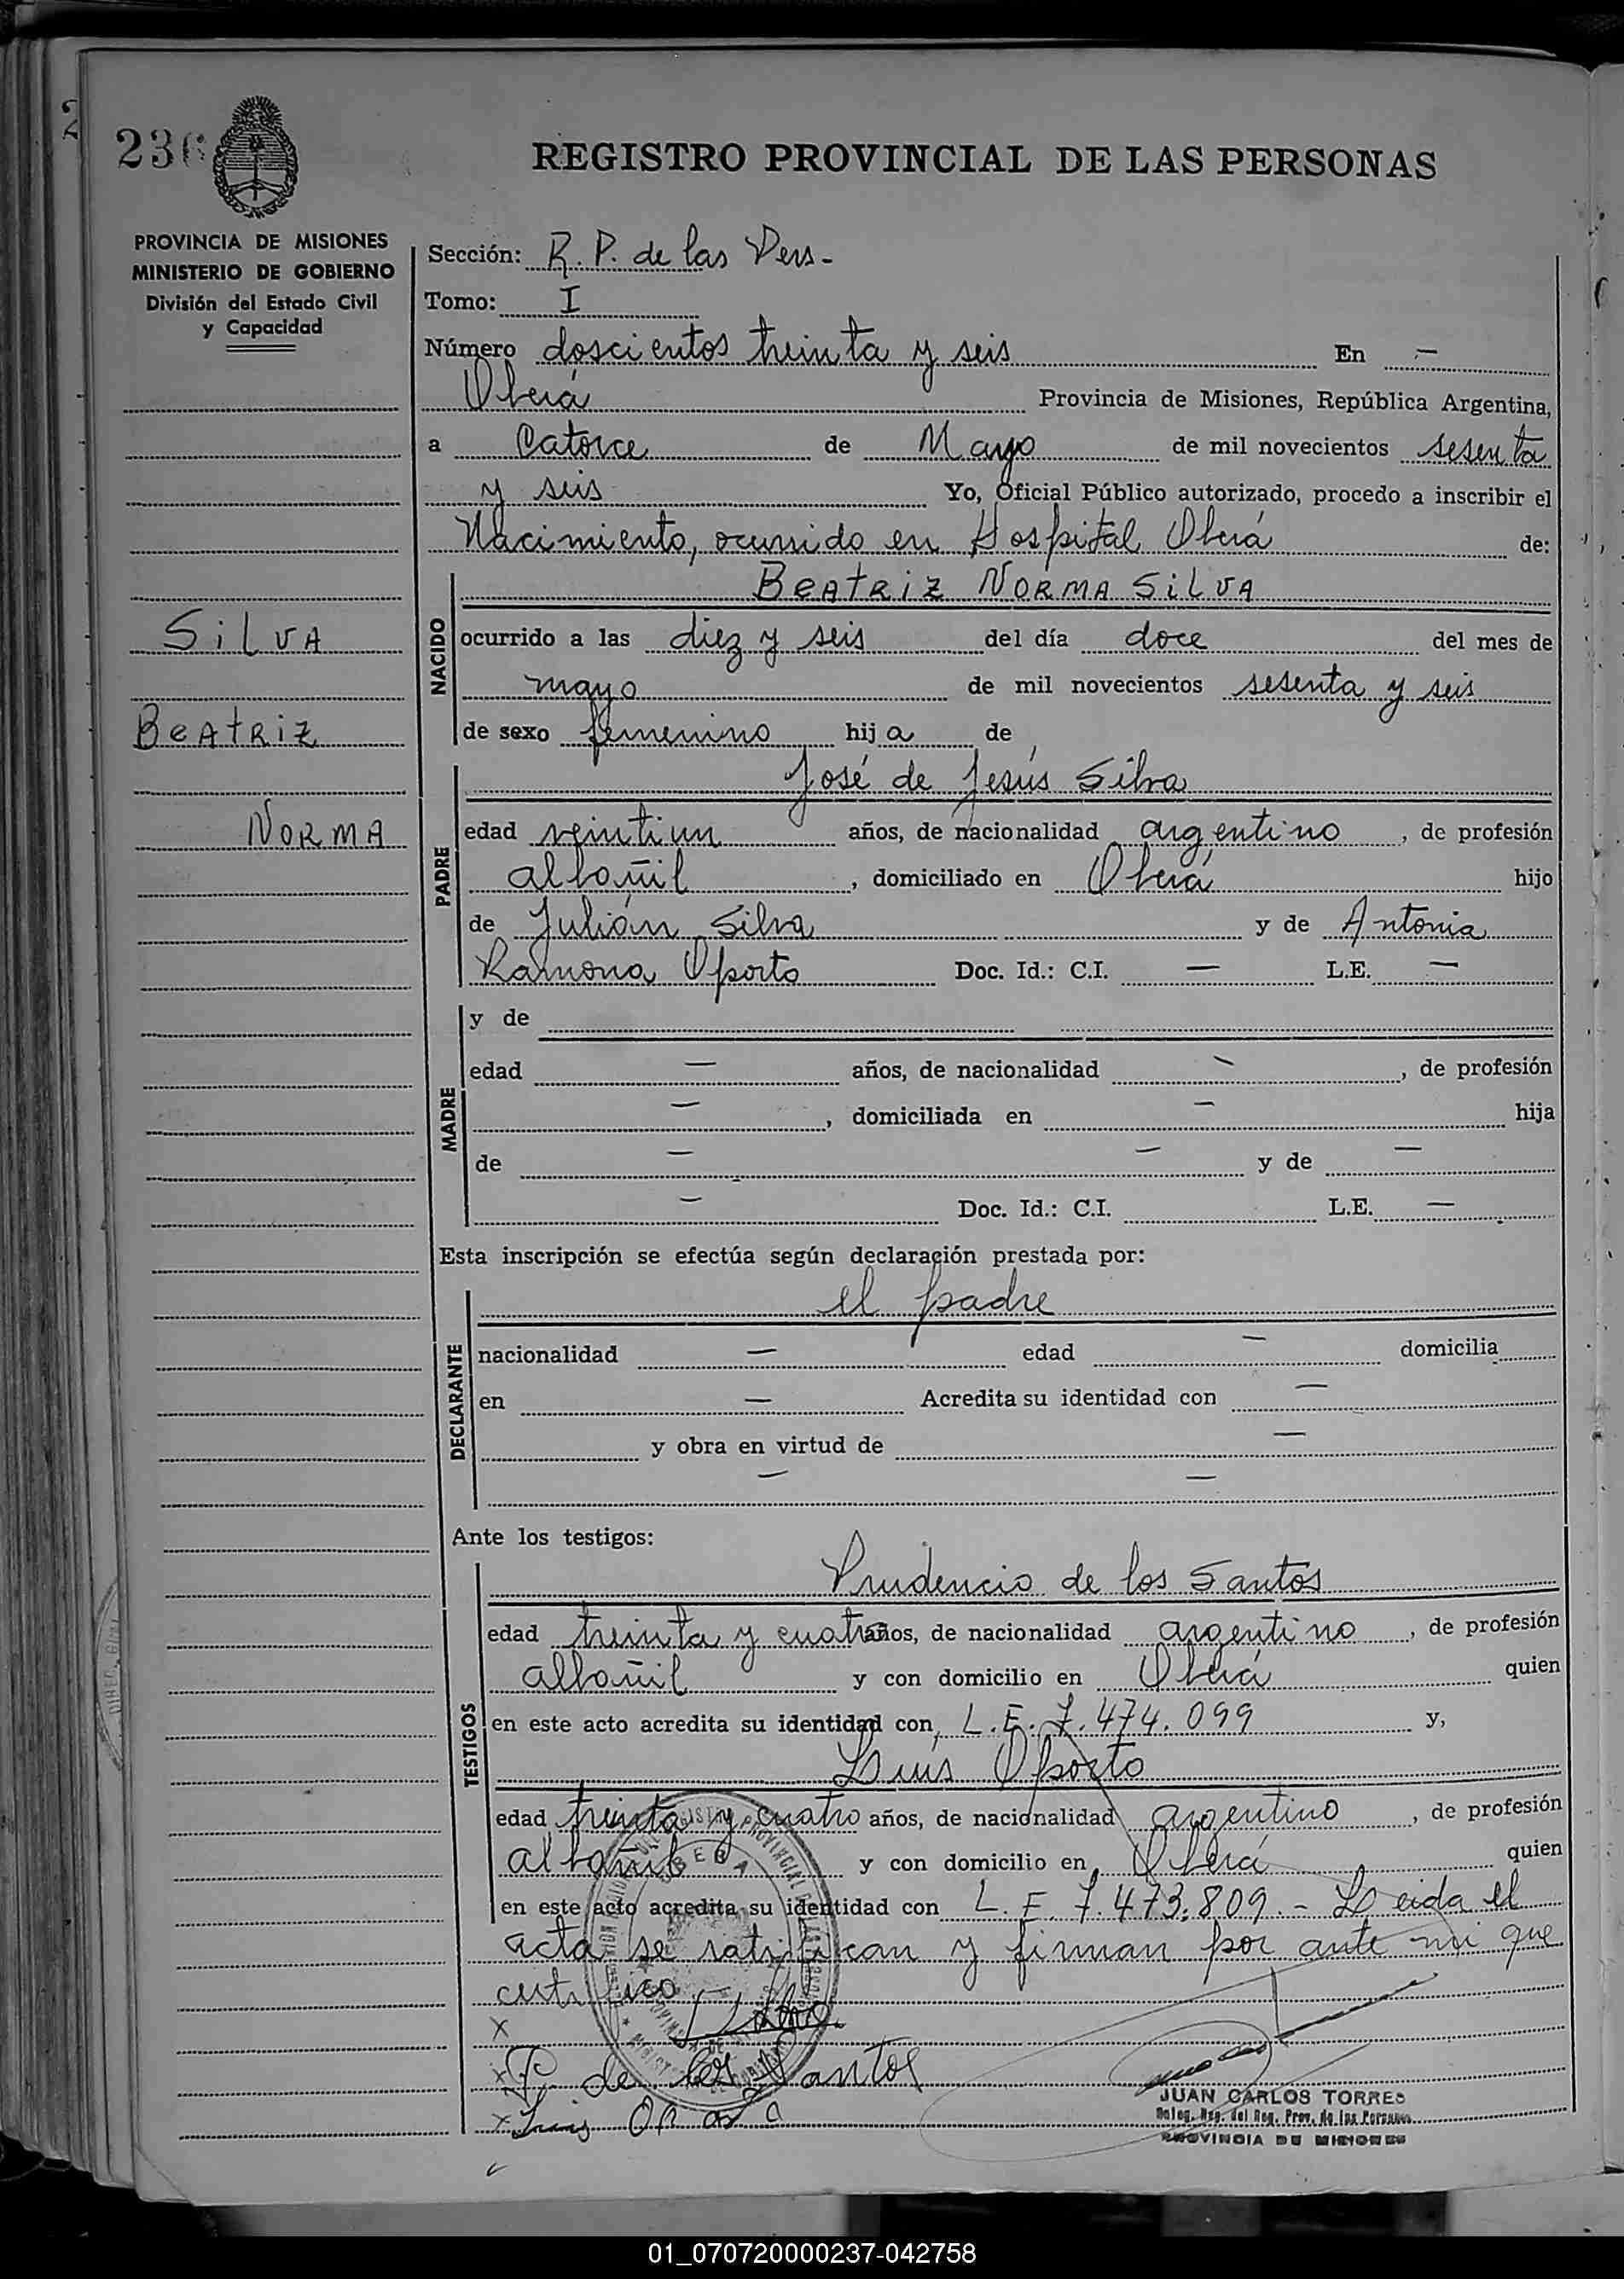 236
REGISTRO PROVINCIAL DE LAS PERSONAS
PROVINCIA DE MISIONES
MINISTERIO DE GOBIERNO
División del Estado Civil
y Capacidad
Sección: R. P. de las Pers-
Tomo: I
Número doscientos treinta y seis En —
Oberá Provincia de Misiones, República Argentina,
a Catorce de Mayo de mil novecientos sesenta
y seis Yo, Oficial Público autorizado, procedo a inscribir el
Nacimiento, ocurrido en Hospital Oberá de:
SILVA
BEATRIZ
NORMA
NACIDO
BEATRIZ NORMA SILVA
ocurrido a las diez y seis del día doce del mes de
mayo de mil novecientos sesenta y seis
de sexo femenino hija de
PADRE
José de Jesús Silva
edad veintiun años, de nacionalidad argentino, de profesión
albañil, domiciliado en Oberá hijo
de Julián Silva y de Antonia
Ramona Oporto Doc. Id.: C.I. — L.E. —
MADRE
y de
edad — años, de nacionalidad —, de profesión
—, domiciliada en — hija
de — — y de —
— Doc. Id.: C.I. L.E. —
Esta inscripción se efectúa según declaración prestada por:
DECLARANTE
el padre
nacionalidad — edad — domicilia
en — Acredita su identidad con —
y obra en virtud de —
— —
Ante los testigos:
TESTIGOS
Prudencio de los Santos
edad treinta y cuatro años, de nacionalidad argentino, de profesión
albañil y con domicilio en Oberá quien
en este acto acredita su identidad con L.E. 7.474.099 y,
Luis Oporto
edad treinta y cuatro años, de nacionalidad argentino, de profesión
albañil y con domicilio en Oberá quien
en este acto acredita su identidad con L.E. 7.473.809.- Leida el
acta se ratifican y firman por ante mi que
certifico
x
x P. de los Santos
x Luis
OBERA
JUAN CARLOS TORRES
Deleg. Reg. del Reg. Prov. de las Personas
PROVINCIA DE MISIONES
01_070720000237-042758